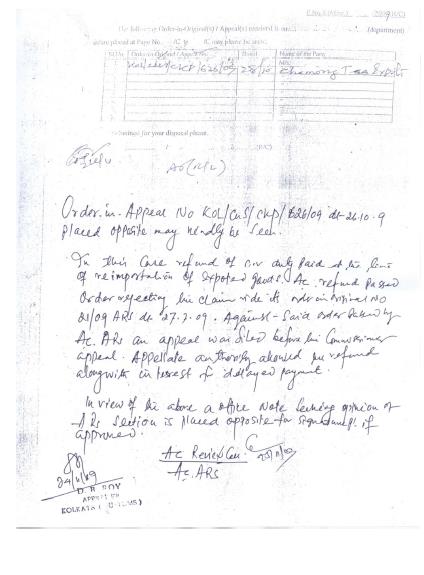 The following Order-in-Original(s) / Appeal(s) received in
(department)
are placed at Page No. /C to /C may please be seen.
Sl.No. Order-in-Original / Appeal No. Dated Name of the Party
KOL/CUS/CKP/626/09 28/10 M/s. Chamong Tea Exports
Submitted for your disposal please.
Order-in-Appeal No KOL/CUS/CKP/626/09 dt-26.10.9
placed opposite may kindly be seen.
In this case refund of duty paid at the time
of reimportation of exported goods. Ac. refund passed
order rejecting his claim vide its order in original No
01/09 ARS dt 27.7.09. Against-Said order passed by
Ac. ARS an appeal was filed before the Commissioner
appeal. Appellate authority allowed the refund
alongwith interest of delayed payment.
In view of the above a office Note seeking opinion of
ARS section is placed opposite for signature, if
approved.
Ac Review Cell
Ac. ARS
24/11/09
D. R. ROY
KOLKATA (CUSTOMS)